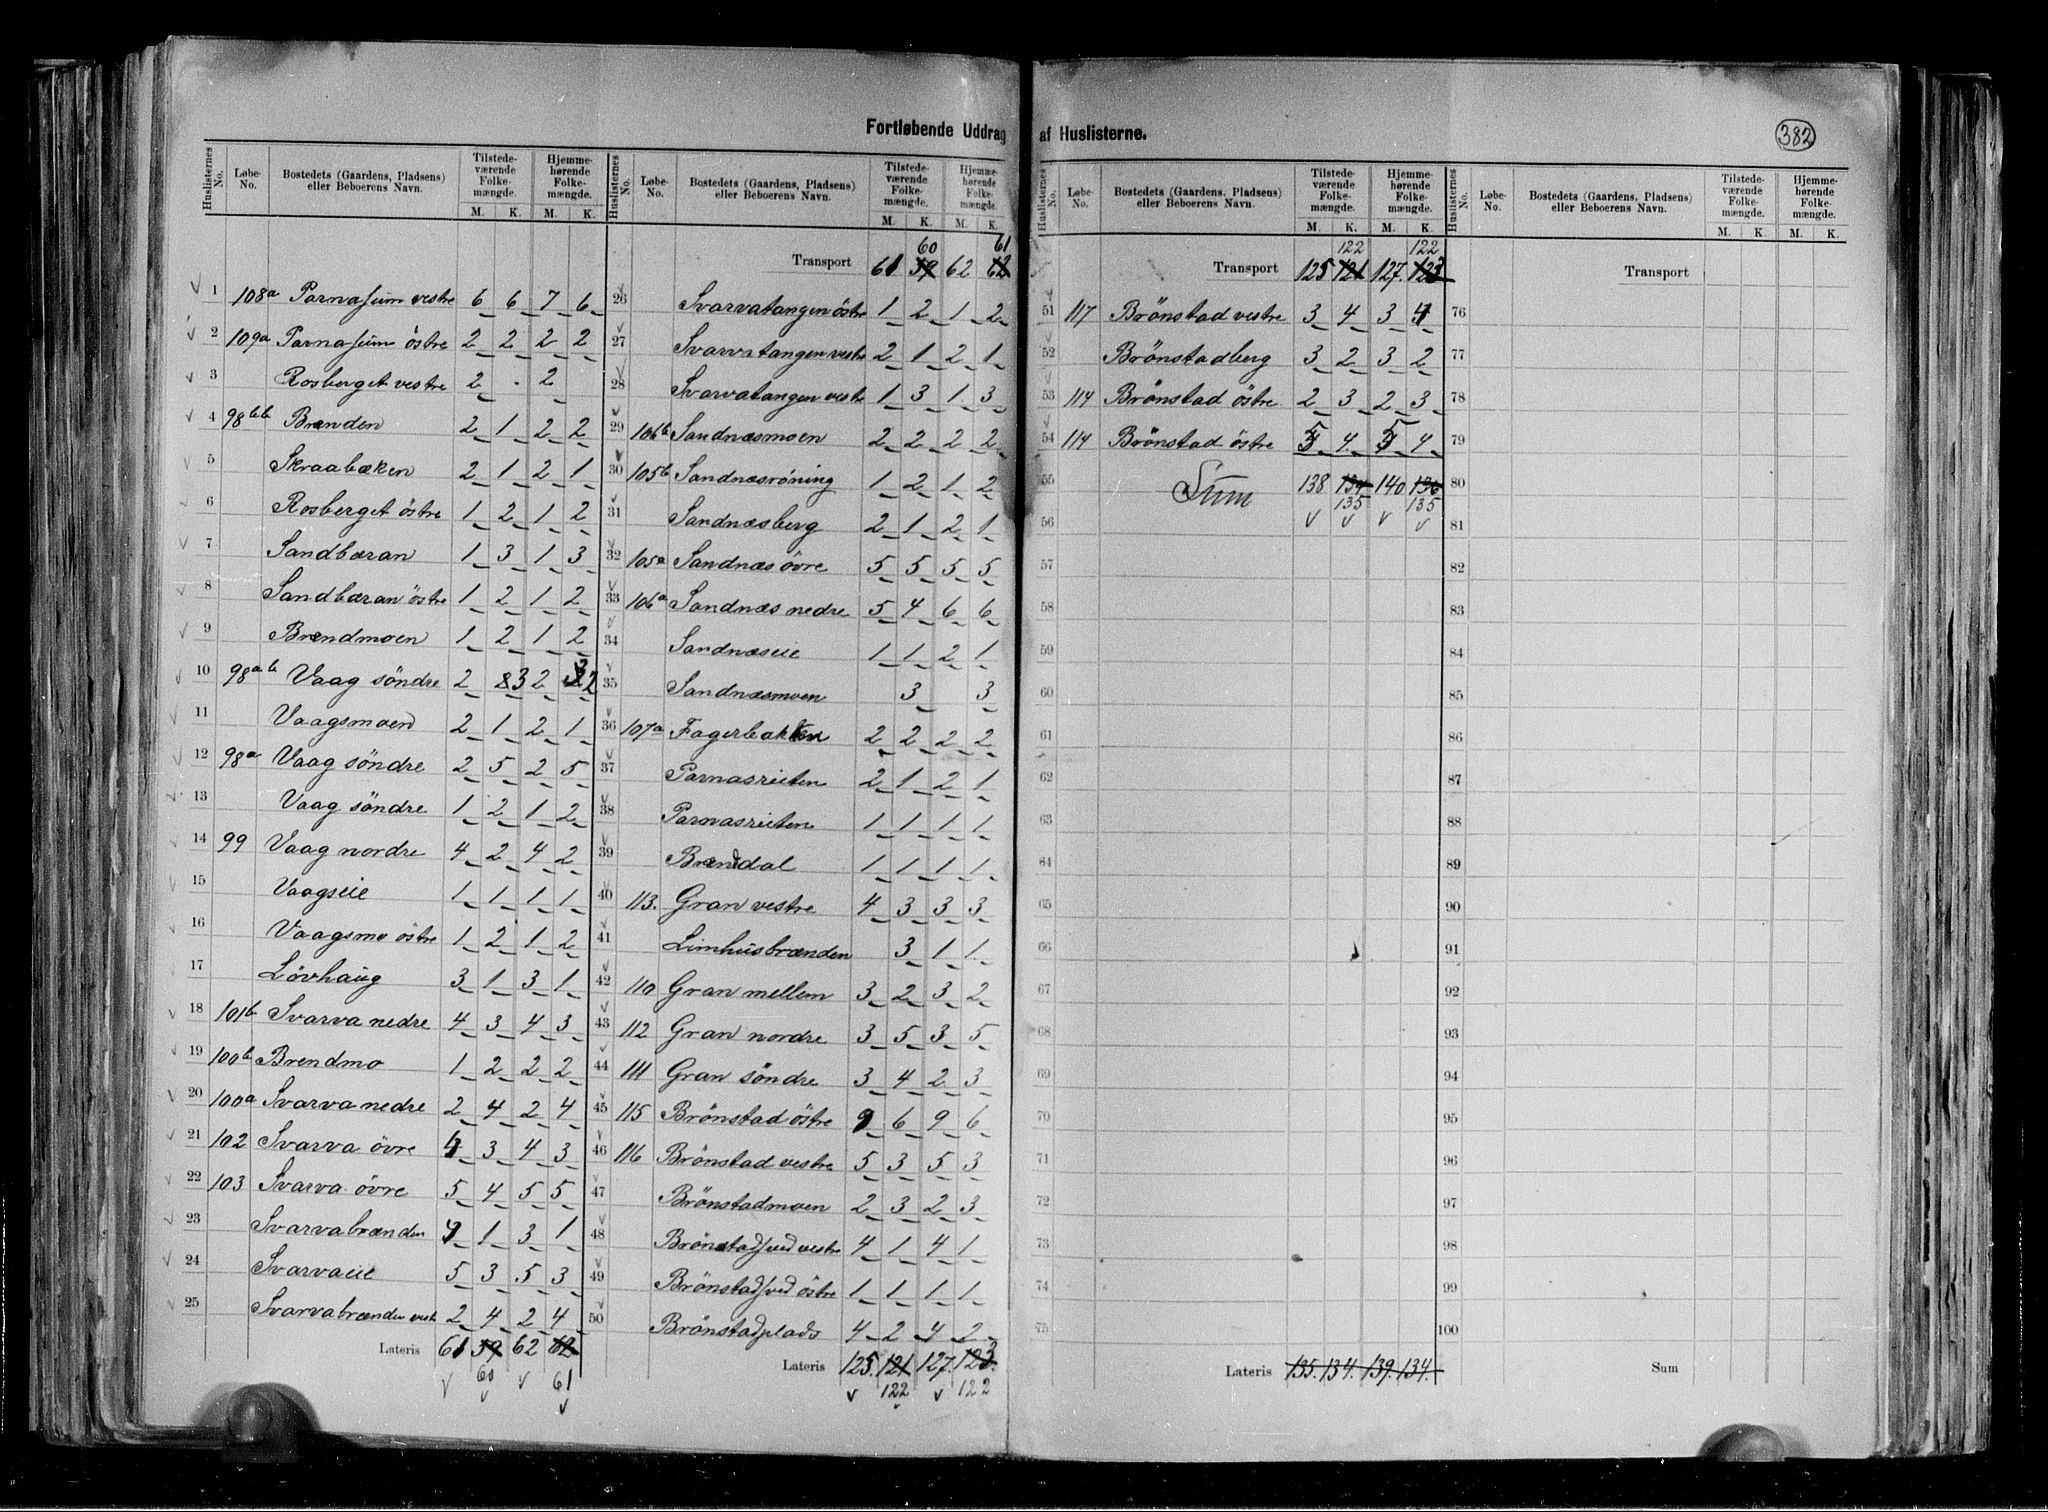 Fortløbende Uddrag af Huslisterne.
382
Huslisternes No. Løbe-No. Bostedets (Gaardens, Pladsens) eller Beboerens Navn. Tilstedeværende Folkemængde. M. K. Hjemmehørende Folkemængde. M. K.
1 108a Parnasum vestre 6 6 7 6
2 109a Parnasum östre 2 2 2 2
3 Rosberget vestre 2 . 2
4 98bb Brænden 2 1 2 2
5 Skraabæken 2 1 2 1
6 Rosberget östre 1 2 1 2
7 Sandbæran 1 3 1 3
8 Sandbæran östre 1 2 1 2
9 Brændmoen 1 2 1 2
10 98ab Vaag söndre 2 3 2 2
11 Vaagsmoen 2 1 2 1
12 98a Vaag söndre 2 5 2 5
13 Vaag söndre 1 2 1 2
14 99 Vaag nordre 4 2 4 2
15 Vaagseie 1 1 1 1
16 Vaagsmo östre 1 2 1 2
17 Lövhaug 3 1 3 1
18 101b Svarva nedre 4 3 4 3
19 100b Brendmo 1 2 2 2
20 100a Svarva nedre 2 4 2 4
21 102 Svarva övre 4 3 4 3
22 103 Svarva övre 5 4 5 5
23 Svarvabrænden 1 3 1
24 Svarvaeie 5 3 5 3
25 Svarvabrænden vest 2 4 2 4
Lateris 61 59 62 62
60 61
Huslisternes No. Løbe-No. Bostedets (Gaardens, Pladsens) eller Beboerens Navn. Tilstedeværende Folkemængde. M. K. Hjemmehørende Folkemængde. M. K.
60 61
Transport 61 59 62 62
26 Svarvatangen östre 1 2 1 2
27 Svarvatangen vestre 2 1 2 1
28 Svarvatangen vestre 1 3 1 3
29 106b Sandnæsmoen 2 2 2 2
30 105b Sandnæsröning 1 2 1 2
31 Sandnæsberg 2 1 2 1
32 105a Sandnæs övre 5 5 5 5
33 106a Sandnæs nedre 5 4 6 6
34 Sandnæseie 1 1 2 1
35 Sandnæsmoen 3 3
36 107a Fagerbakken 2 2 2 2
37 Parnasrieten 2 1 2 1
38 Parnasrieten 1 1 1 1
39 Brændal 1 1 1 1
40 113. Gran vestre 4 3 3 3
41 Limhusbrænden 3 1 1
42 110 Gran mellem 3 2 3 2
43 112 Gran nordre 3 5 3 5
44 111 Gran söndre 3 4 2 3
45 115 Brönstad östre 9 6 9 6
46 116 Brönstad vestre 5 3 5 3
47 Brönstadmoen 2 3 2 3
48 Brönstadsved vestre 4 1 4 1
49 Brönstadsved östre 1 1 1 1
50 Brönstadplads 4 2 4 2
Lateris 125. 121 127. 123.
122 122
Huslisternes No. Løbe-No. Bostedets (Gaardens, Pladsens) eller Beboerens Navn. Tilstedeværende Folkemængde. M. K. Hjemmehørende Folkemængde. M. K.
122 122
Transport 125 121 127. 123
51 117 Brönstad vestre 3 4 3 4
52 Brönstadberg 3 2 3 2
53 114 Brönstad östre 2 3 2 3
54 114 Brönstad östre 5 4 5 4
55 Sum 138 134 140 136
135 135
56
57
58
59
60
61
62
63
64
65
66
67
68
69
70
71
72
73
74
75
Lateris 135. 134. 139. 134.
Huslisternes No. Løbe-No. Bostedets (Gaardens, Pladsens) eller Beboerens Navn. Tilstedeværende Folkemængde. M. K. Hjemmehørende Folkemængde. M. K.
Transport
76
77
78
79
80
81
82
83
84
85
86
87
88
89
90
91
92
93
94
95
96
97
98
99
100
Sum